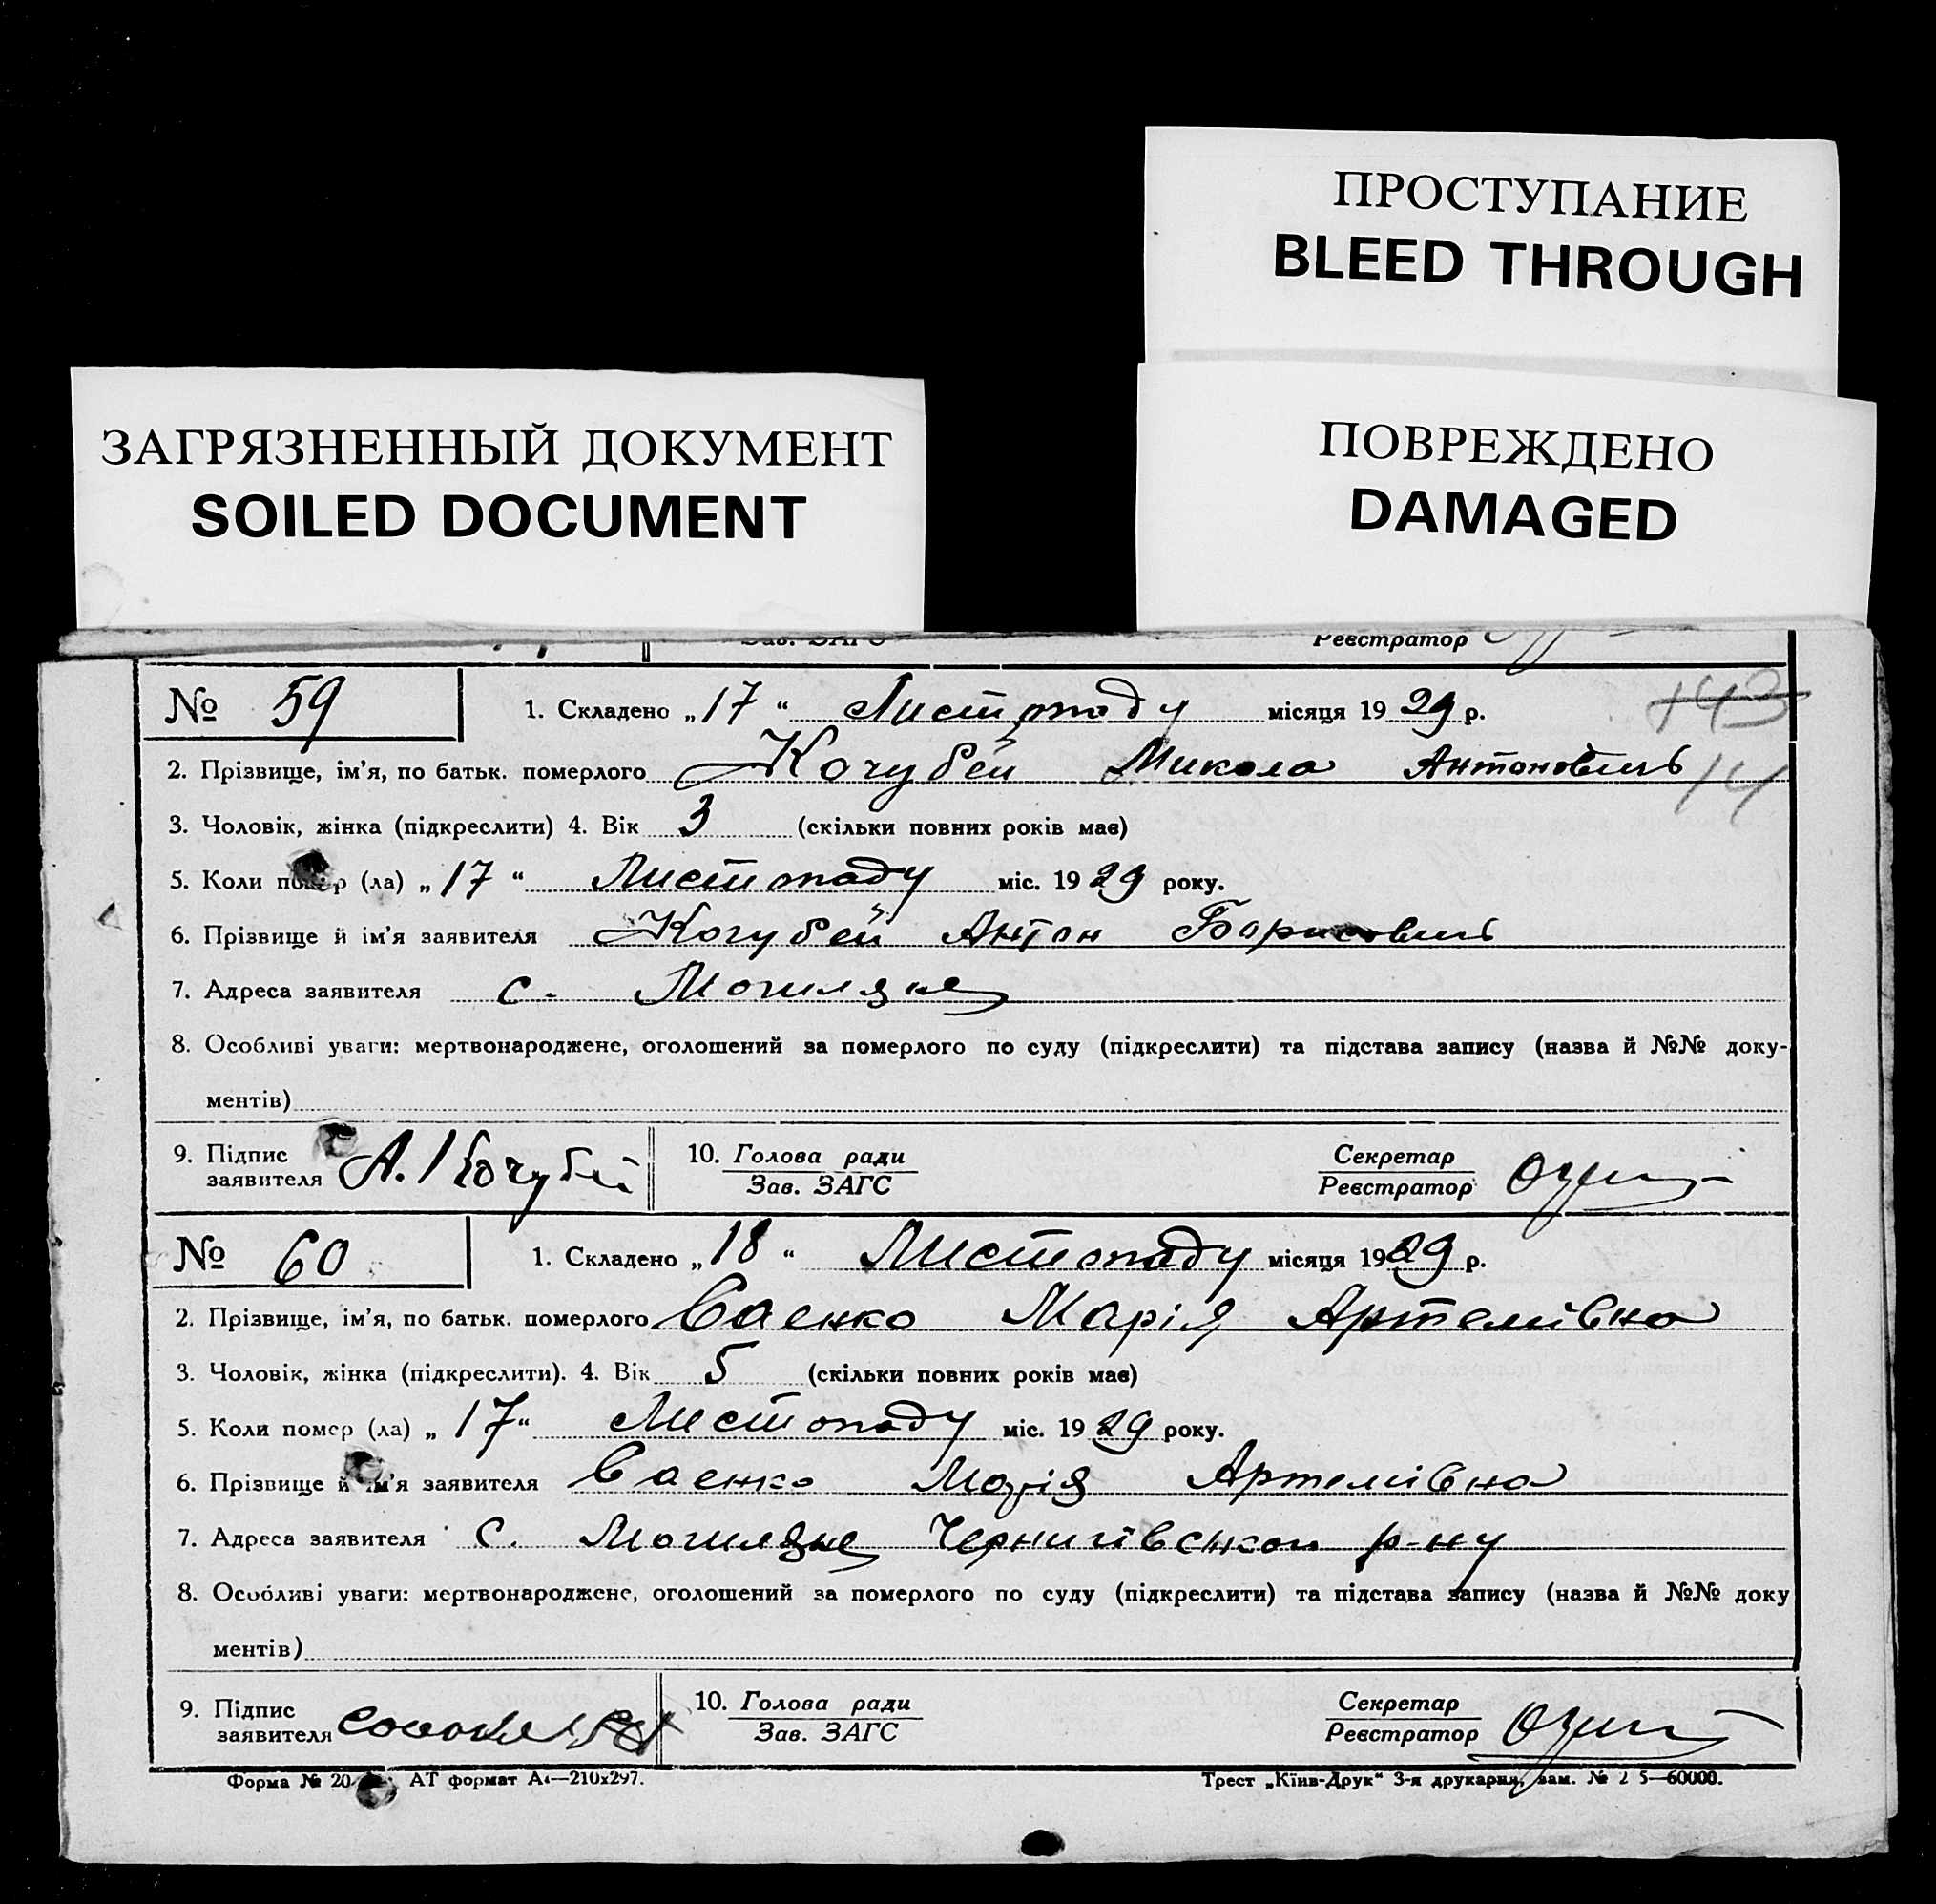 ПРОСТУПАНИЕ
BLEED THROUGH
ЗАГРЯЗНЕННЫЙ ДОКУМЕНТ
SOILED DOCUMENT
ПОВРЕЖДЕНО
DAMAGED
Зав. ЗАГС Реєстратор
№ 59 1. Складено „17“ Листопаду місяця 1929 р. 143
2. Прізвище, ім'я, по батьк. померлого Кочубей Микола Антонович 14
3. Чоловік, жінка (підкреслити) 4. Вік 3 (скільки повних років має)
5. Коли помер (ла) „17“ Листопаду міс. 1929 року.
6. Прізвище й ім'я заявителя Кочубей Антон Борисович
7. Адреса заявителя с.
8. Особливі уваги: мертвонароджене, оголошений за померлого по суду (підкреслити) та підстава запису (назва й №№ доку-
ментів)
9. Підпис заявителя А. Кочубей 10. Голова ради Зав. ЗАГС Секретар Реєстратор
№ 60 1. Складено „18“ Листопаду місяця 1929 р.
2. Прізвище, ім'я, по батьк. померлого Саенко Марія Артемівна
3. Чоловік, жінка (підкреслити). 4. Вік 5 (скільки повних років має)
5. Коли помер (ла) „17“ Листопаду міс. 1929 року.
6. Прізвище й ім'я заявителя Саенко Марія Артемівна
7. Адреса заявителя с. р-ну
8. Особливі уваги: мертвонароджене, оголошений за померлого по суду (підкреслити) та підстава запису (назва й №№ доку
ментів)
9. Підпис заявителя 10. Голова ради Зав. ЗАГС Секретар Реєстратор
Форма № 20 АТ формат А4—210x297. Трест „Київ-Друк“ 3-я друкарня, зам. № 2 5—60000.